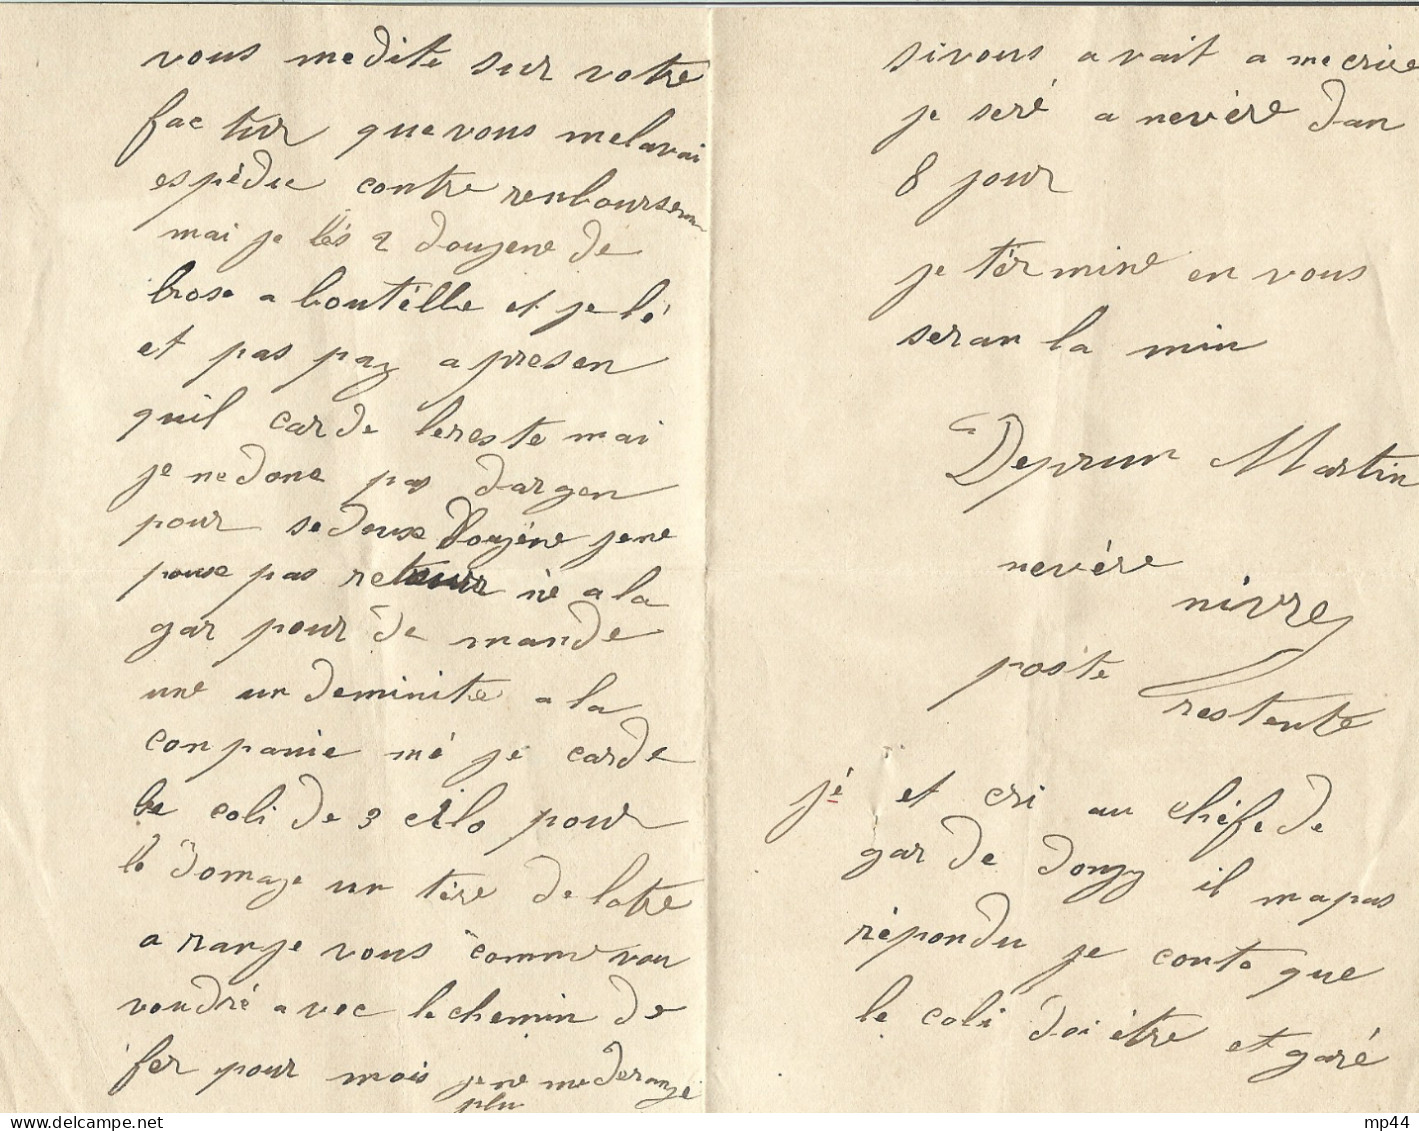 vous medite sur votre
factur que vous melavai
espèdie contre renboursemen
mai je lés 2 doujene de
brose a boutèlle et je lé
et pas pay a presen
quil carde lereste mai
je nedone pas dargen
pour sedouse doujène jene
pouse pas retour nè a la
gar pour de mande
une un deminite a la
conpanie mé je carde
le coli de 3 cilo pour
le domaje un tère de lotre
a ranje vous comme vou
voudré avec le chemin de
fer pour mois jene me deranje
plu
sivous avait a mecrire
je seré a nevère dan
8 jour
je tèrmine en vous
seran la min
Deprun Martin
nevére
nivre
poste
restente
jé et cri au chéfe de
gar de donzy il ma pas
répondu je conte que
le coli doi ètre et garé
Delcampe.net
mp44